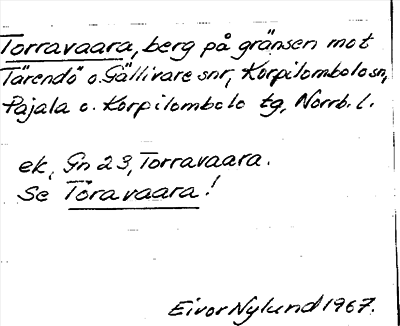 Torravaara, berg på gränsen mot
Tärendö o. Gällivare snr, Korpilombolo sn,
Pajala o. Korpilombolo tg, Norrb. l.
ek, Gn 23, Torravaara.
Se Töravaara!
Eivor Nylund 1967.